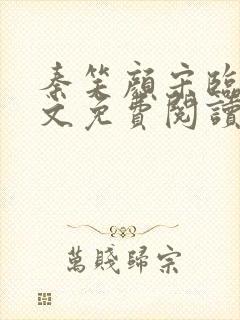 秦笑顏宋臨
文免費閱讀
萬賤歸宗